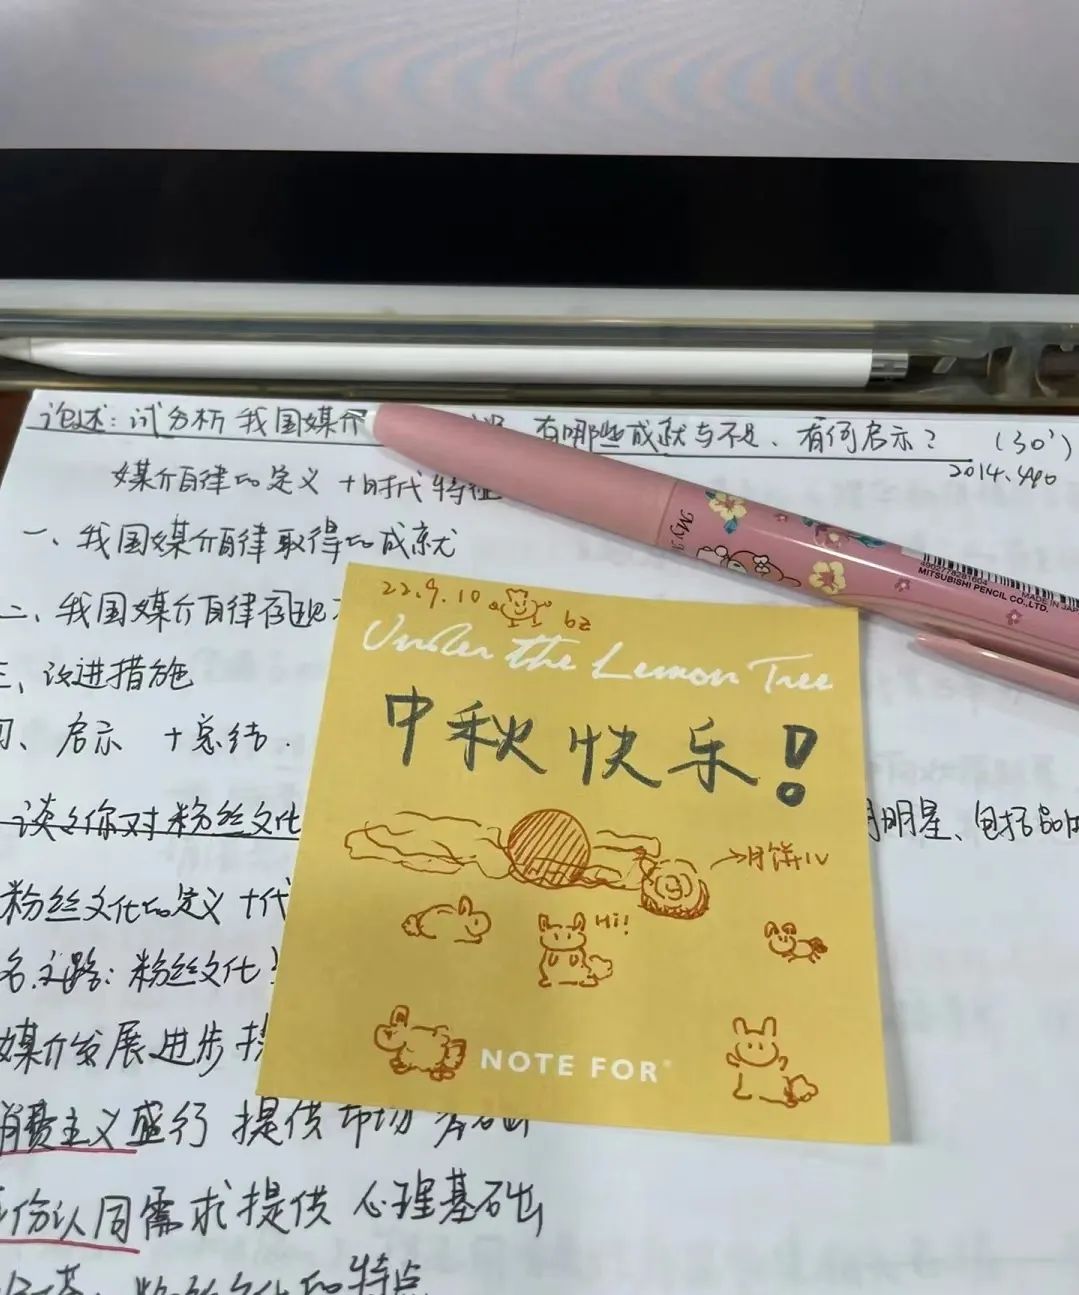 论述：试分析我国媒介 有哪些成就与不足、有何启示？ （30'）
2014.
媒介自律的定义 + 时代特征
一、我国媒介自律取得的成就
二、我国媒介自律
三、改进措施
启示 + 总结.
My
4902778281604
MITSUBISHI PENCIL CO.,LTD.
MADE IN JAP
22.9.10 bz
Under the Lemon Tree
中秋快乐！
→月饼
Hi!
NOTE FOR
谈谈你对粉丝文化 明星、包括品牌
粉丝文化的定义 + 代
名 思路：粉丝文化
媒介发展进步 提
消费主义盛行 提供市场
份认同需求提供 心理基础
粉丝文化的特点